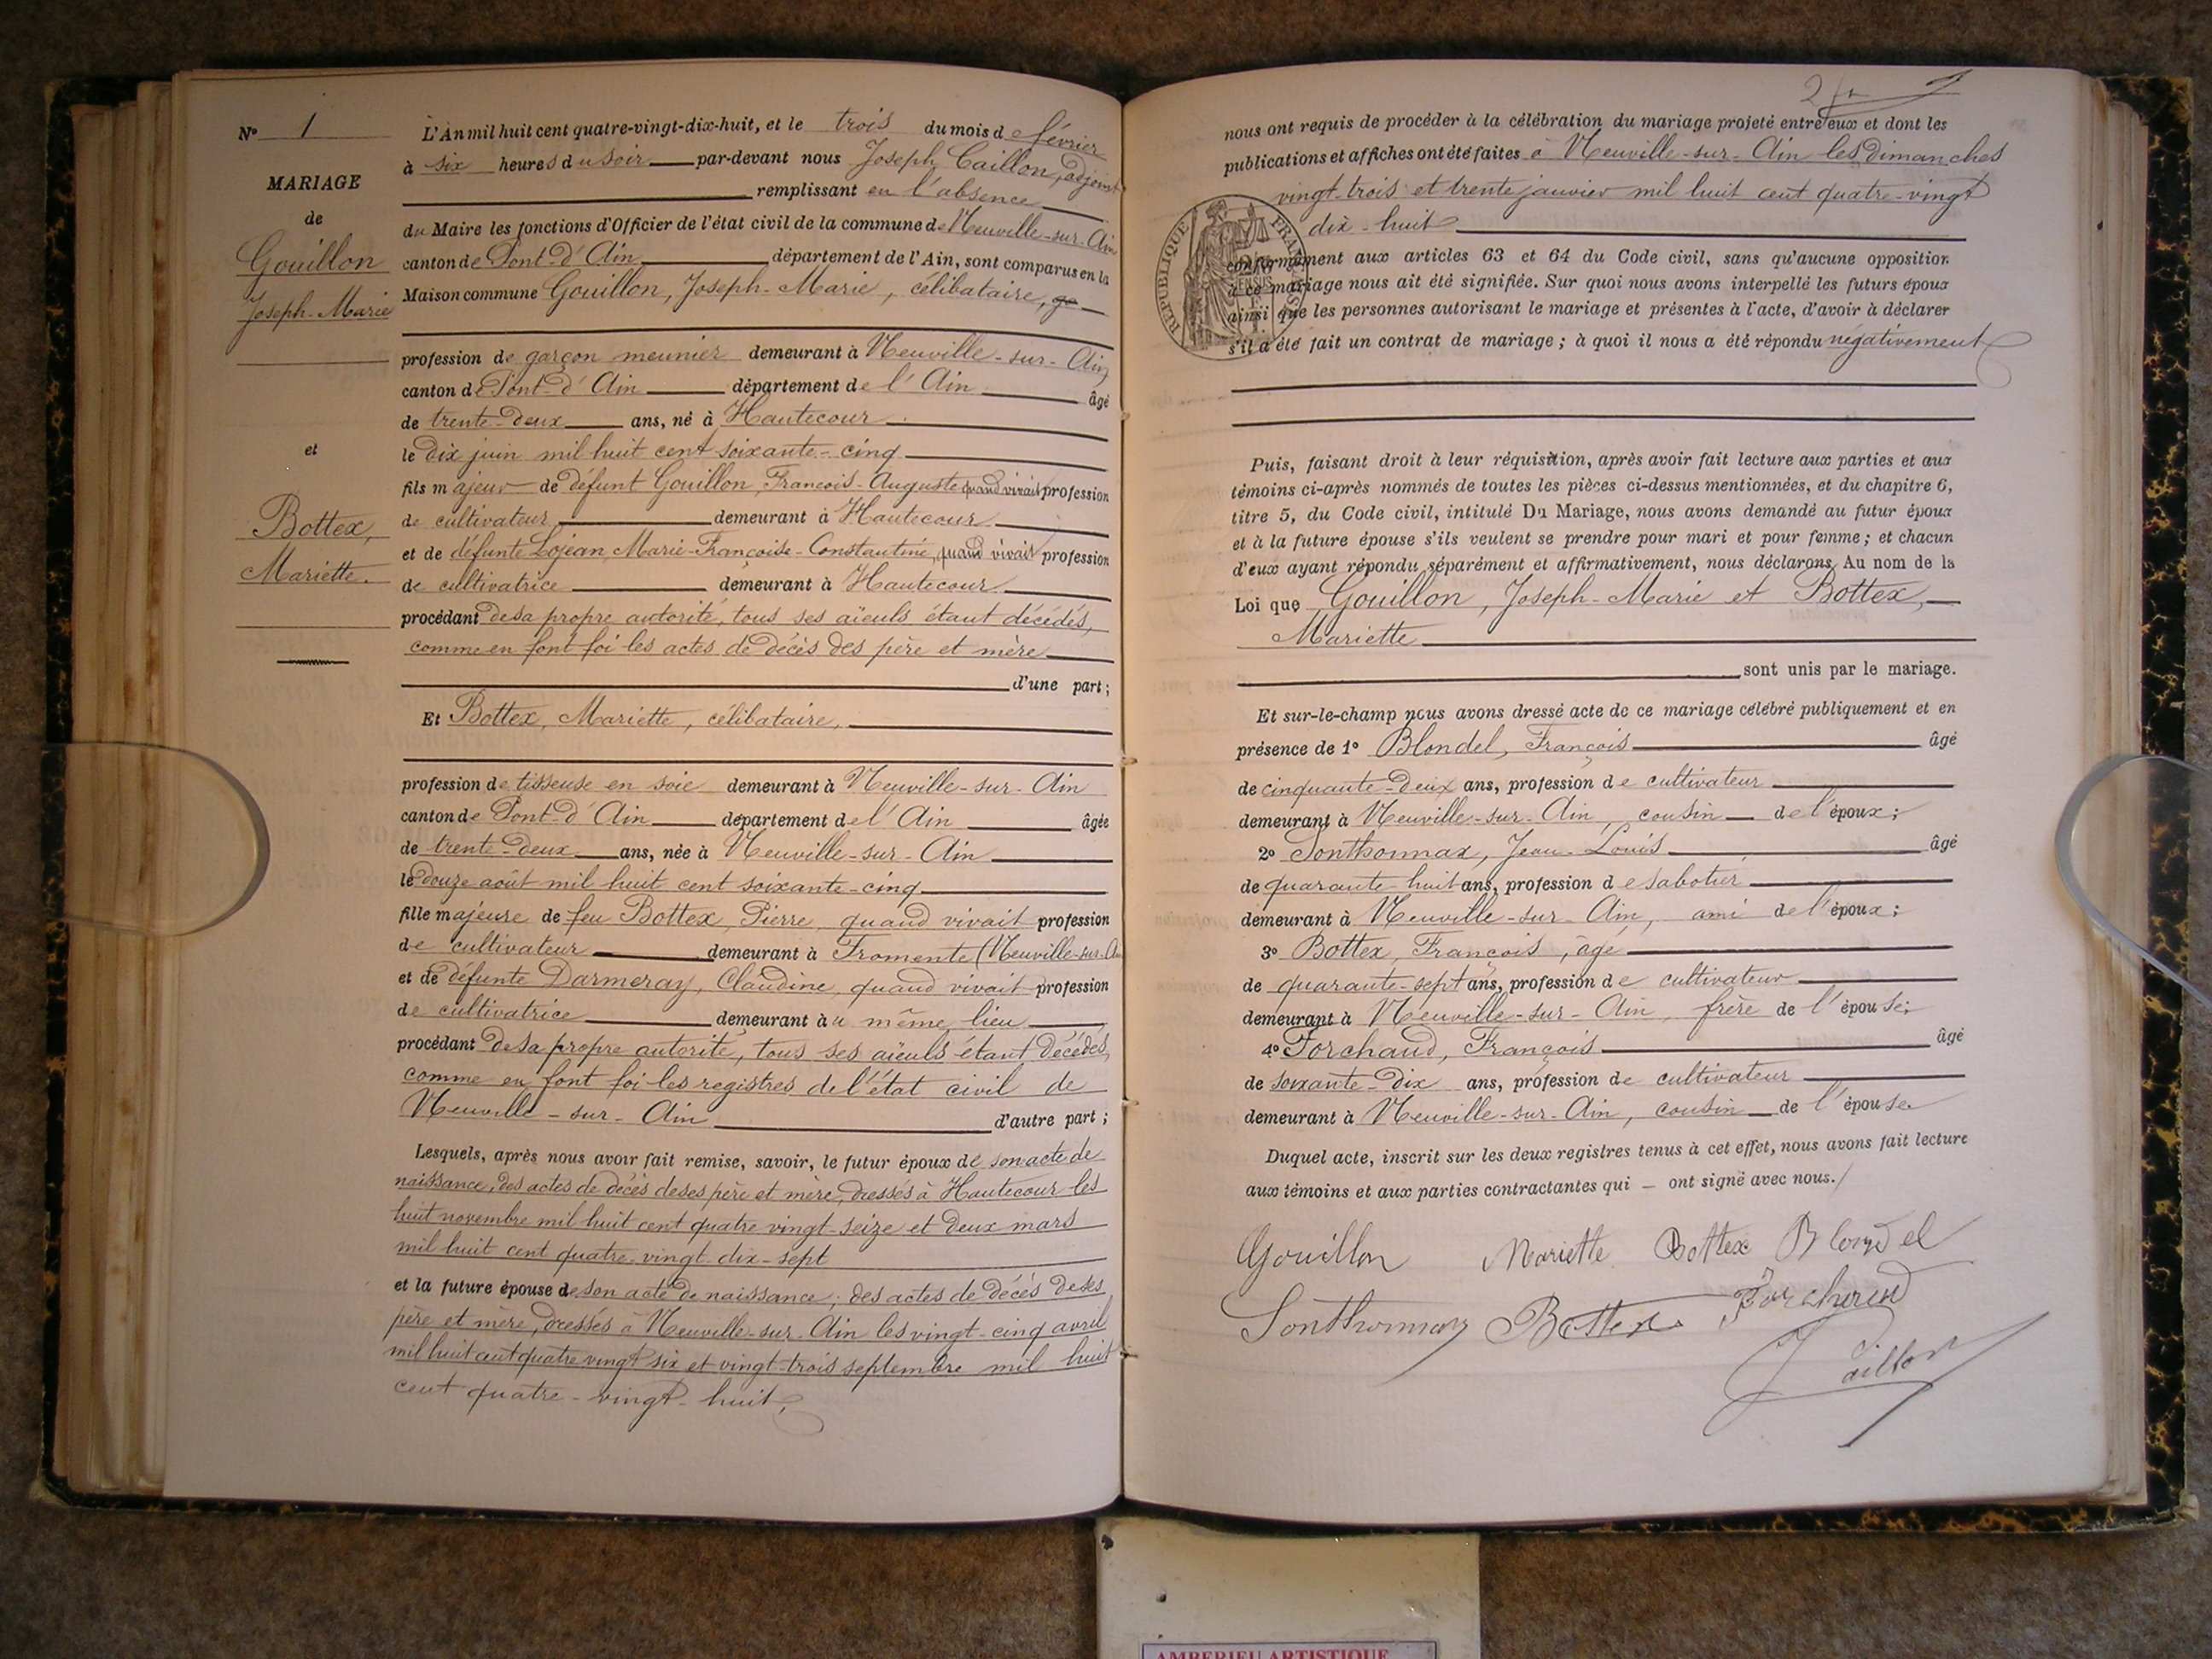 N° 1
MARIAGE
de
Gouillon
Joseph-Marie
et
Bottex,
Mariette.
L'An mil huit cent quatre-vingt-dix-huit, et le trois du mois de février
à six heures du soir par-devant nous Joseph Caillon, adjoint
remplissant en l'absence
du Maire les fonctions d'Officier de l'état civil de la commune de Neuville-sur-Ain
canton de Pont-d'Ain département de l'Ain, sont comparus en la
Maison commune Gouillon, Joseph-Marie, célibataire,
profession de garçon meunier demeurant à Neuville-sur-Ain,
canton de Pont-d'Ain département de l'Ain âgé
de trente-deux ans, né à Hautecour
le dix juin mil huit cent soixante-cinq
fils majeur de défunt Gouillon, François-Auguste quand vivait profession
de cultivateur demeurant à Hautecour
et de défunte Lojean, Marie-Françoise-Constantine, quand vivait profession
de cultivatrice demeurant à Hautecour
procédant de sa propre autorité, tous ses aïeuls étant décédés,
comme en font foi les actes de décès des père et mère
d'une part;
Et Bottex, Mariette, célibataire,
profession de tisseuse en soie demeurant à Neuville-sur-Ain
canton de Pont-d'Ain département de l'Ain âgée
de trente-deux ans, née à Neuville-sur-Ain
le douze août mil huit cent soixante-cinq
fille majeure de feu Bottex, Pierre, quand vivait profession
de cultivateur demeurant à Fromente (Neuville-sur-A
et de défunte Darmeray, Claudine, quand vivait profession
de cultivatrice demeurant au même lieu
procédant de sa propre autorité, tous ses aïeuls étant décédés,
comme en font foi les registres de l'état civil de
Neuville-sur-Ain d'autre part;
Lesquels, après nous avoir fait remise, savoir, le futur époux de son acte de
naissance, des actes de décès de ses père et mère, dressés à Hautecour les
huit novembre mil huit cent quatre vingt-seize et deux mars
mil huit cent quatre-vingt-dix-sept
et la future épouse de son acte de naissance; des actes de décès de ses
père et mère, dressés à Neuville-sur-Ain les vingt-cinq avril
mil huit cent quatre vingt six et vingt-trois septembre mil huit
cent quatre-vingt-huit,
2
nous ont requis de procéder à la célébration du mariage projeté entre eux et dont les
publications et affiches ont été faites à Neuville-sur-Ain les dimanches
vingt-trois et trente janvier mil huit cent quatre-vingt
dix-huit
RÉPUBLIQUE FRANÇAISE
conformément aux articles 63 et 64 du Code civil, sans qu'aucune opposition
à ce mariage nous ait été signifiée. Sur quoi nous avons interpellé les futurs époux
ainsi que les personnes autorisant le mariage et présentes à l'acte, d'avoir à déclarer
s'il a été fait un contrat de mariage; à quoi il nous a été répondu négativement
Puis, faisant droit à leur réquisition, après avoir fait lecture aux parties et aux
témoins ci-après nommés de toutes les pièces ci-dessus mentionnées, et du chapitre 6,
titre 5, du Code civil, intitulé Du Mariage, nous avons demandé au futur époux
et à la future épouse s'ils veulent se prendre pour mari et pour femme; et chacun
d'eux ayant répondu séparément et affirmativement, nous déclarons Au nom de la
Loi que Gouillon, Joseph-Marie et Bottex,
Mariette
sont unis par le mariage.
Et sur-le-champ nous avons dressé acte de ce mariage célébré publiquement et en
présence de 1° Blondel, François âgé
de cinquante-deux ans, profession de cultivateur
demeurant à Neuville-sur-Ain, cousin de l'époux;
2° Sonthonnax, Jean-Louis âgé
de quarante-huit ans, profession de sabotier
demeurant à Neuville-sur-Ain, ami de l'époux;
3° Bottex, François, âgé
de quarante-sept ans, profession de cultivateur
demeurant à Neuville-sur-Ain, frère de l'épouse;
4° Forchaud, François âgé
de soixante-dix ans, profession de cultivateur
demeurant à Neuville-sur-Ain, cousin de l'épouse.
Duquel acte, inscrit sur les deux registres tenus à cet effet, nous avons fait lecture
aux témoins et aux parties contractantes qui — ont signé avec nous./
Gouillon Mariette Bottex Blondel
Sonthonnax Bottex
J Caillon
AMBERIEU ARTISTIQUE